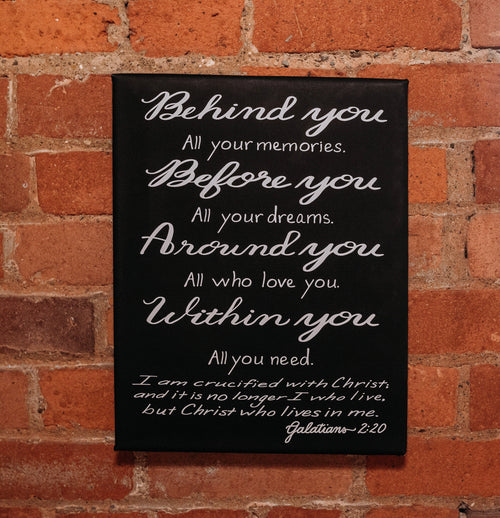 Behind you
All your memories.
Before you
All your dreams.
Around you
All who love you.
Within you
All you need.
I am crucified with Christ;
and it is no longer I who live,
but Christ who lives in me.
Galatians 2:20